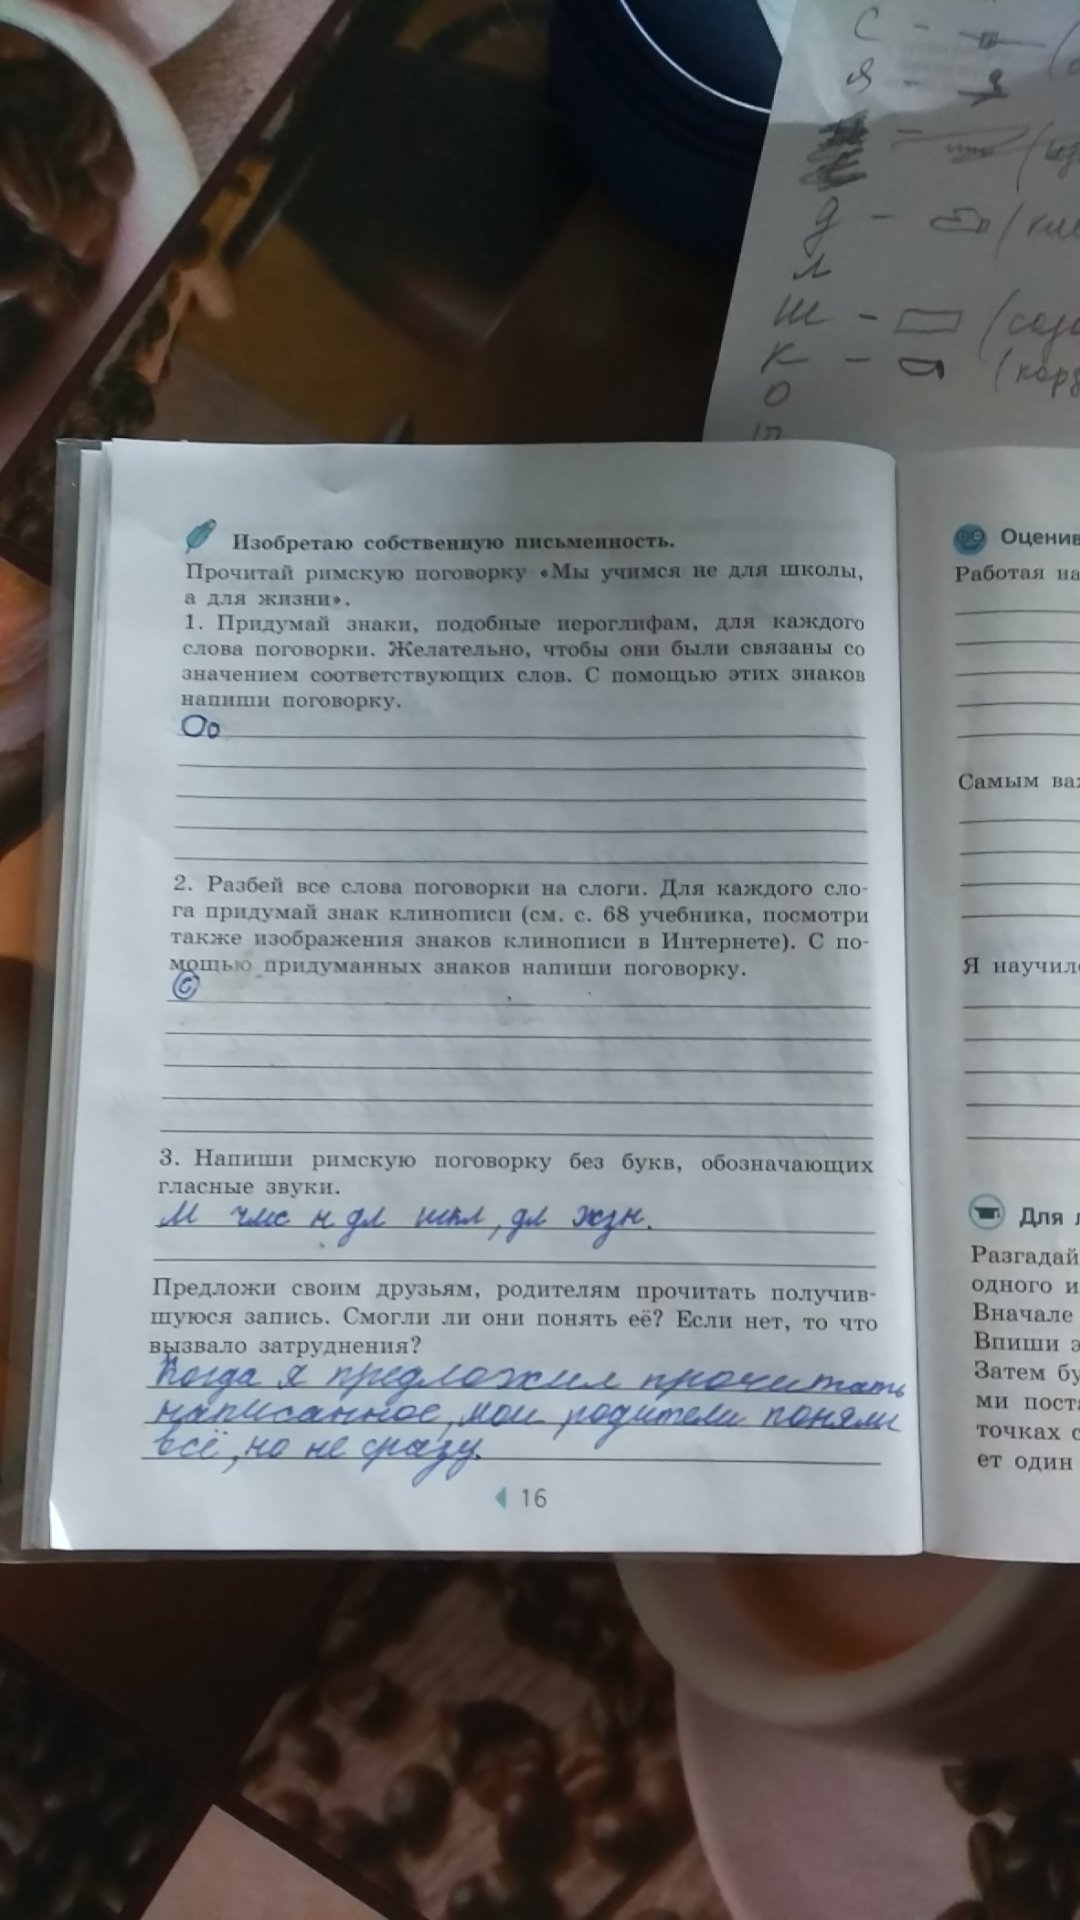 С -
Я -
Д - (кле
л
Ш - (
К - (
О
П
Изобретаю собственную письменность.
Прочитай римскую поговорку «Мы учимся не для школы,
а для жизни».
1. Придумай знаки, подобные иероглифам, для каждого
слова поговорки. Желательно, чтобы они были связаны со
значением соответствующих слов. С помощью этих знаков
напиши поговорку.
2. Разбей все слова поговорки на слоги. Для каждого сло-
га придумай знак клинописи (см. с. 68 учебника, посмотри
также изображения знаков клинописи в Интернете). С по-
мощью придуманных знаков напиши поговорку.
3. Напиши римскую поговорку без букв, обозначающих
гласные звуки.
М чмс н дл шкл, дл жзн.
Предложи своим друзьям, родителям прочитать получив-
шуюся запись. Смогли ли они понять её? Если нет, то что
вызвало затруднения?
Когда я предложил прочитать
написанное, мои родители поняли
всё, но не сразу.
16
Оценив
Работая на
Самым ва
Я научил
Для л
Разгадай
одного и
Вначале
Впиши э
Затем бу
ми поста
точках с
ет один